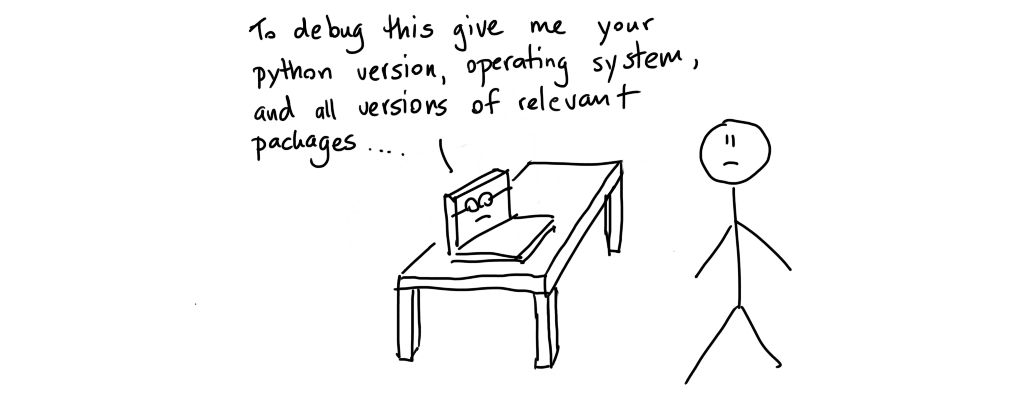 To debug this give me your
python version, operating system,
and all versions of relevant
packages ....